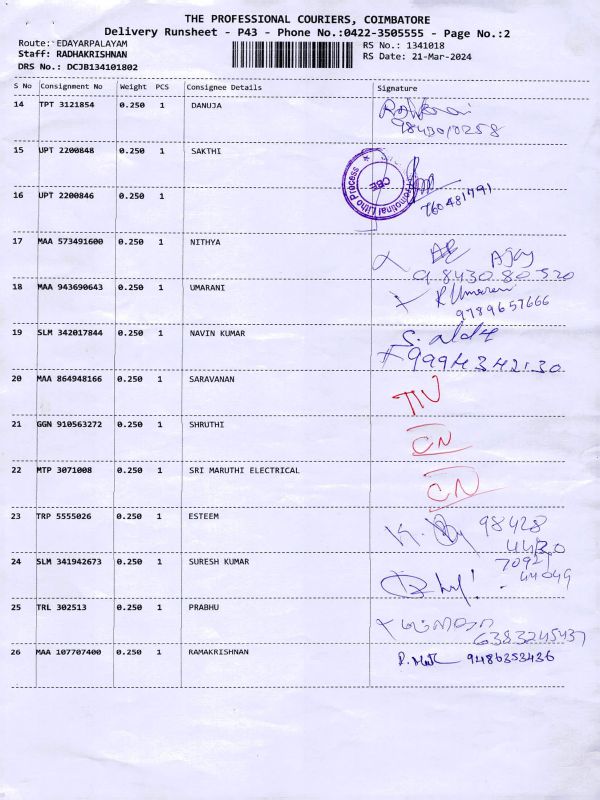 THE PROFESSIONAL COURIERS, COIMBATORE
Delivery Runsheet - P43 - Phone No.:0422-3505555 - Page No.:2
Route: EDAYARPALAYAM RS No.: 1341018
Staff: RADHAKRISHNAN RS Date: 21-Mar-2024
DRS No.: DCJB134101802
S No Consignment No Weight PCS Consignee Details Signature
14 TPT 3121854 0.250 1 DANUJA
15 UPT 2200848 0.250 1 SAKTHI
Promotinal Litho Process
CBE
16 UPT 2200846 0.250 1
760481791
17 MAA 573491600 0.250 1 NITHYA Ajay
98430 80520
18 MAA 943690643 0.250 1 UMARANI R Umarani
9789657666
19 SLM 342017844 0.250 1 NAVIN KUMAR
9994342130
20 MAA 864948166 0.250 1 SARAVANAN
21 GGN 910563272 0.250 1 SHRUTHI CN
22 MTP 3071008 0.250 1 SRI MARUTHI ELECTRICAL CN
23 TRP 5555026 0.250 1 ESTEEM 98428
24 SLM 341942673 0.250 1 SURESH KUMAR
25 TRL 302513 0.250 1 PRABHU
6383245437
26 MAA 107707400 0.250 1 RAMAKRISHNAN 9486353436